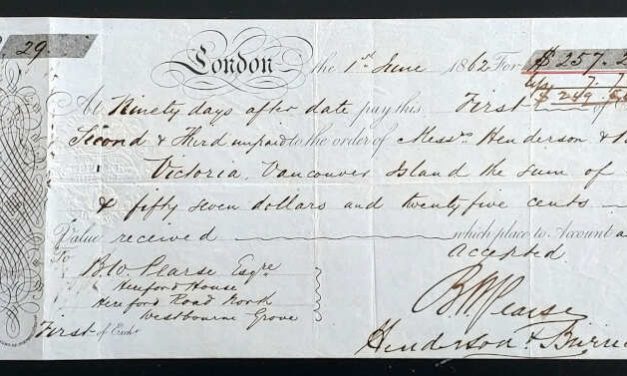 29
London the 1st June 1862 For $257.2
$249.50
At Ninety days after date pay this First
Second & Third unpaid to the order of Messrs Henderson &
Victoria, Vancouver Island the sum of
& fifty seven dollars and twenty five cents
Value received which place to Account
Accepted
To
B W Pearse Esqre
Hereford House
Hereford Road North
Westbourne Grove
B W Pearse
First of Exche
Henderson & Burn